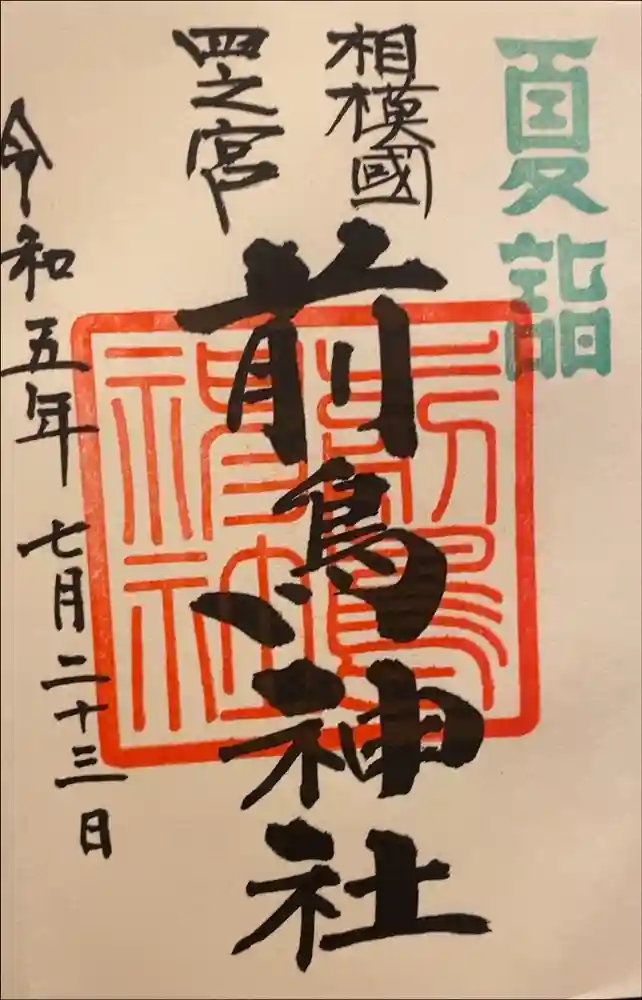 夏詣
相模國
四之宮
前鳥神社
前鳥神社
令和五年七月二十三日